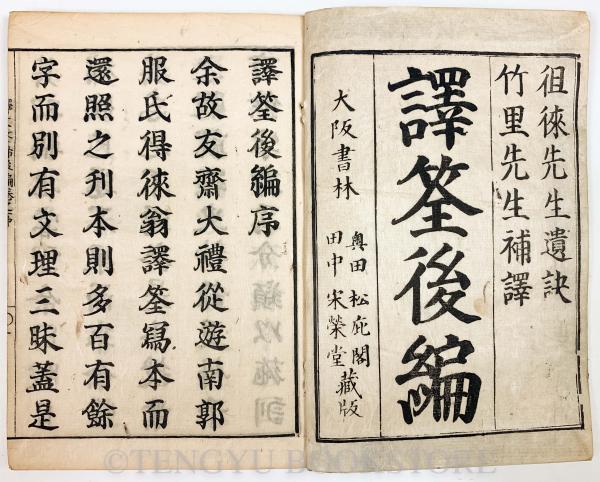 徂徠先生遺訣
竹里先生補譯
譯筌後編
大阪書林
奥田 松庇閣
田中 宋榮堂
藏版
譯筌後編序
余故友齋大禮從遊南郭
服氏得徠翁譯筌寫本而
還照之刊本則多百有餘
字而別有文理三昧蓋是
©TENGYU BOOKSTORE